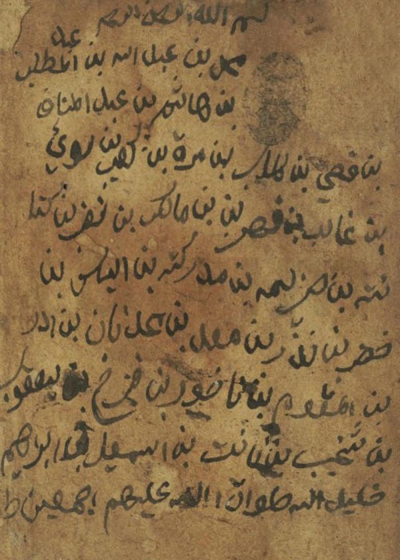 بسم الله الرحمن الرحيم
محمد بن عبد الله بن عبد المطلب
بن هاشم بن عبد المناف
بن قصي بن كلاب بن مرة بن كعب بن لوئي
بن غالب بن فهر بن بن مالك بن نضر بن كنا
نته بن خزيمه بن مدركته بن الياس بن
مضر بن نذر بن معد بن عدنان بن ادد
بن المقوم بن ناخور بن تيرخ بن يعقوب
بن يشخب بن نابت بن اسمعيل بن ابراهيم
خليل الله صلوات الله عليهم اجمعين ط